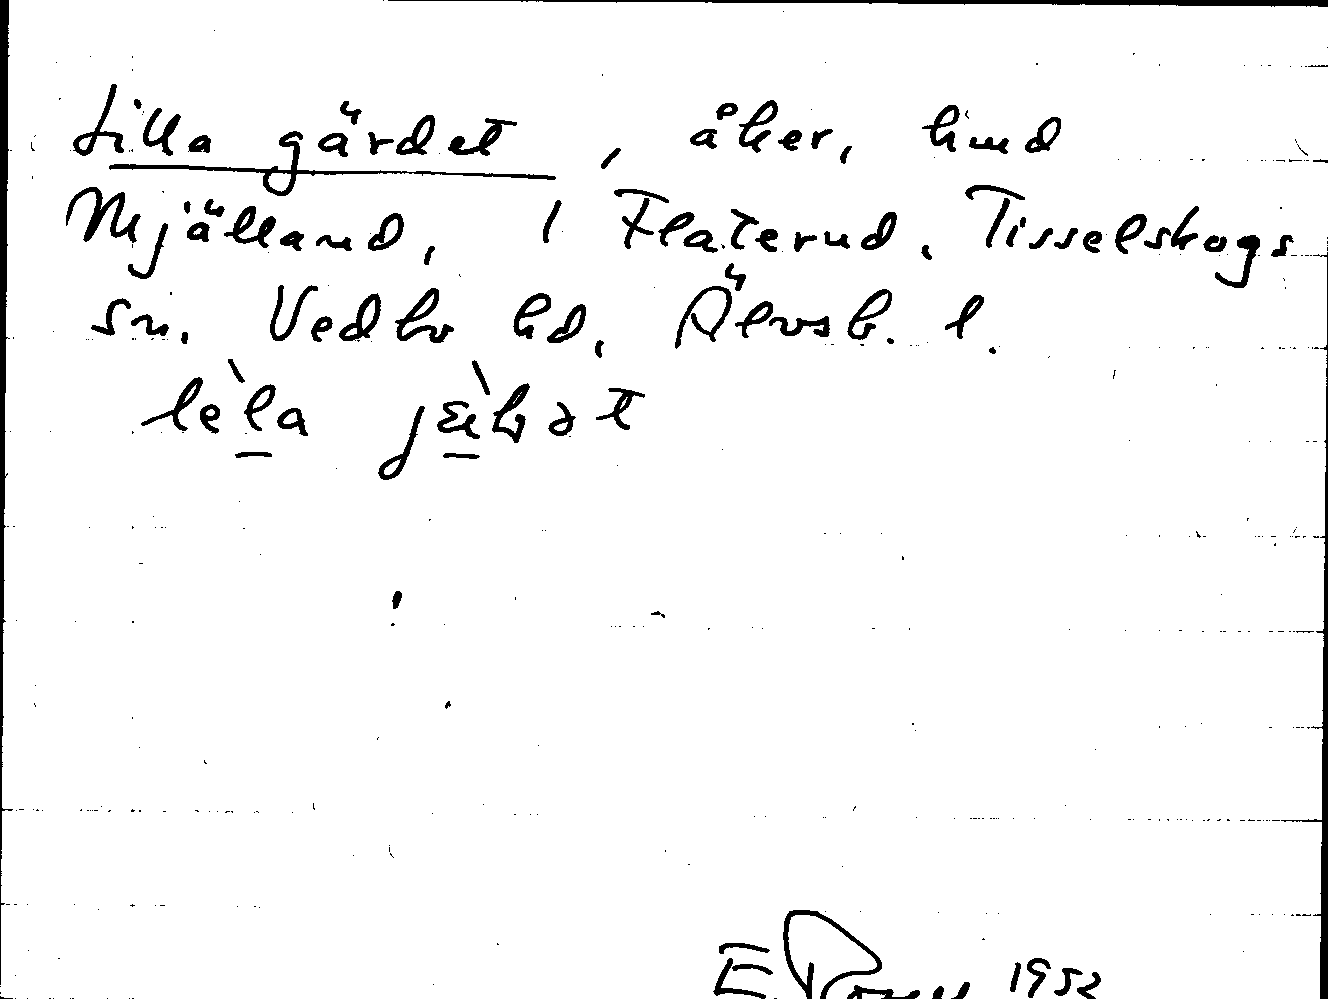 Lilla gärdet, åker, hmd
Mjälland, 1 Flaterud. Tisselskogs
sn. Vedbo hd, Älvsb. l.
E. 1952